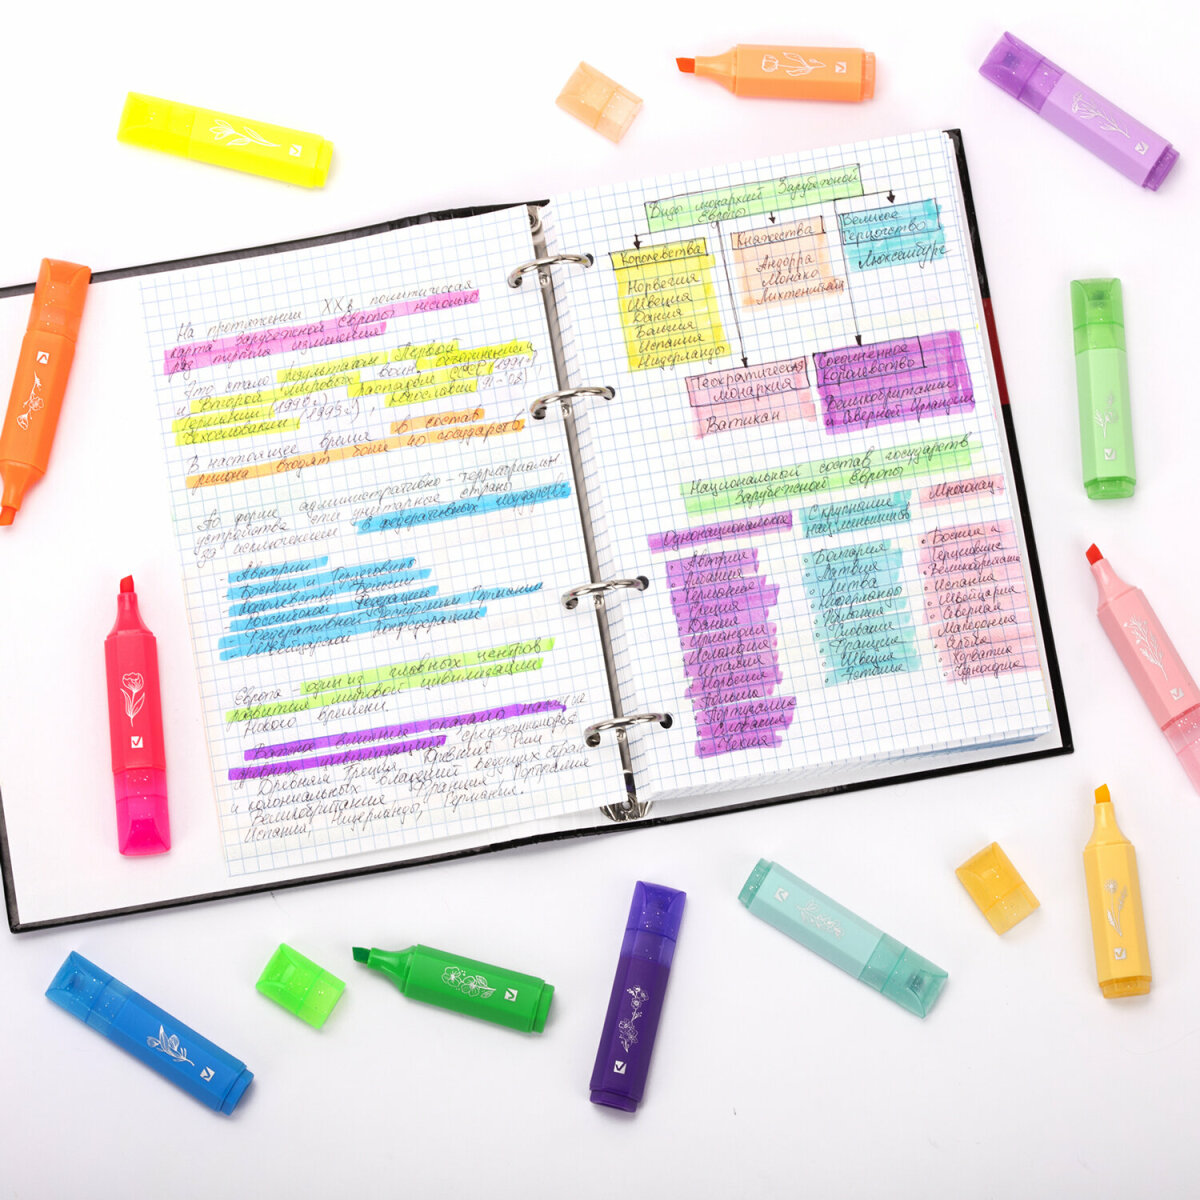 На протяжении XX в. политическая
карта Зарубежной Европы несколько
раз терпела изменения
Это стало результатом Первой
и Второй мировых войн, объединения
Германии (1990г.), распадом СССР (1991г.),
Чехословакии (1993г.), Югославии 91-08
В настоящее время в состав
региона входят более 40 государств.
По форме административно-территориальн
устройства эти унитарные страны
за исключением федеративных государств
- Австрии
- Боснии и Герцеговины
- Королевства Бельгии
- Российской Федерации
- Федеративной республики Германии
- Швейцарской Конфедерации
Европа - один из главных центров
развития мировой цивилизации
Нового времени.
Большое влияние оказало наследие
древних цивилизаций средиземноморья
Древняя Греция, Древний Рим
и колониальных владений ведущих стран
Великобритания Франция Португалия
Испания, Нидерланды, Германия.
Виды монархий Зарубежной
Европы
Королевства
Норвегия
Швеция
Дания
Бельгия
Испания
Нидерланды
Княжества
Андорра
Монако
Лихтенштейн
Великое
Герцогство
Люксембург
Теократическая
монархия
Ватикан
Соединенное
королевство
Великобритании
и Северной Ирландии
Национальный состав государств
Зарубежной Европы
Однонациональные
• Австрия
• Албания
• Германия
• Греция
• Дания
• Ирландия
• Исландия
• Италия
• Норвегия
• Польша
• Португалия
• Словакия
• Чехия
С крупными
нац. меньшинств
• Болгария
• Латвия
• Литва
• Нидерланды
• Румыния
• Словакия
• Франция
• Швеция
• Эстония
Многонац.
• Босния и
Герцеговина
• Великобритания
• Испания
• Швейцария
• Северная
Македония
• Сербия
• Хорватия
• Черногория